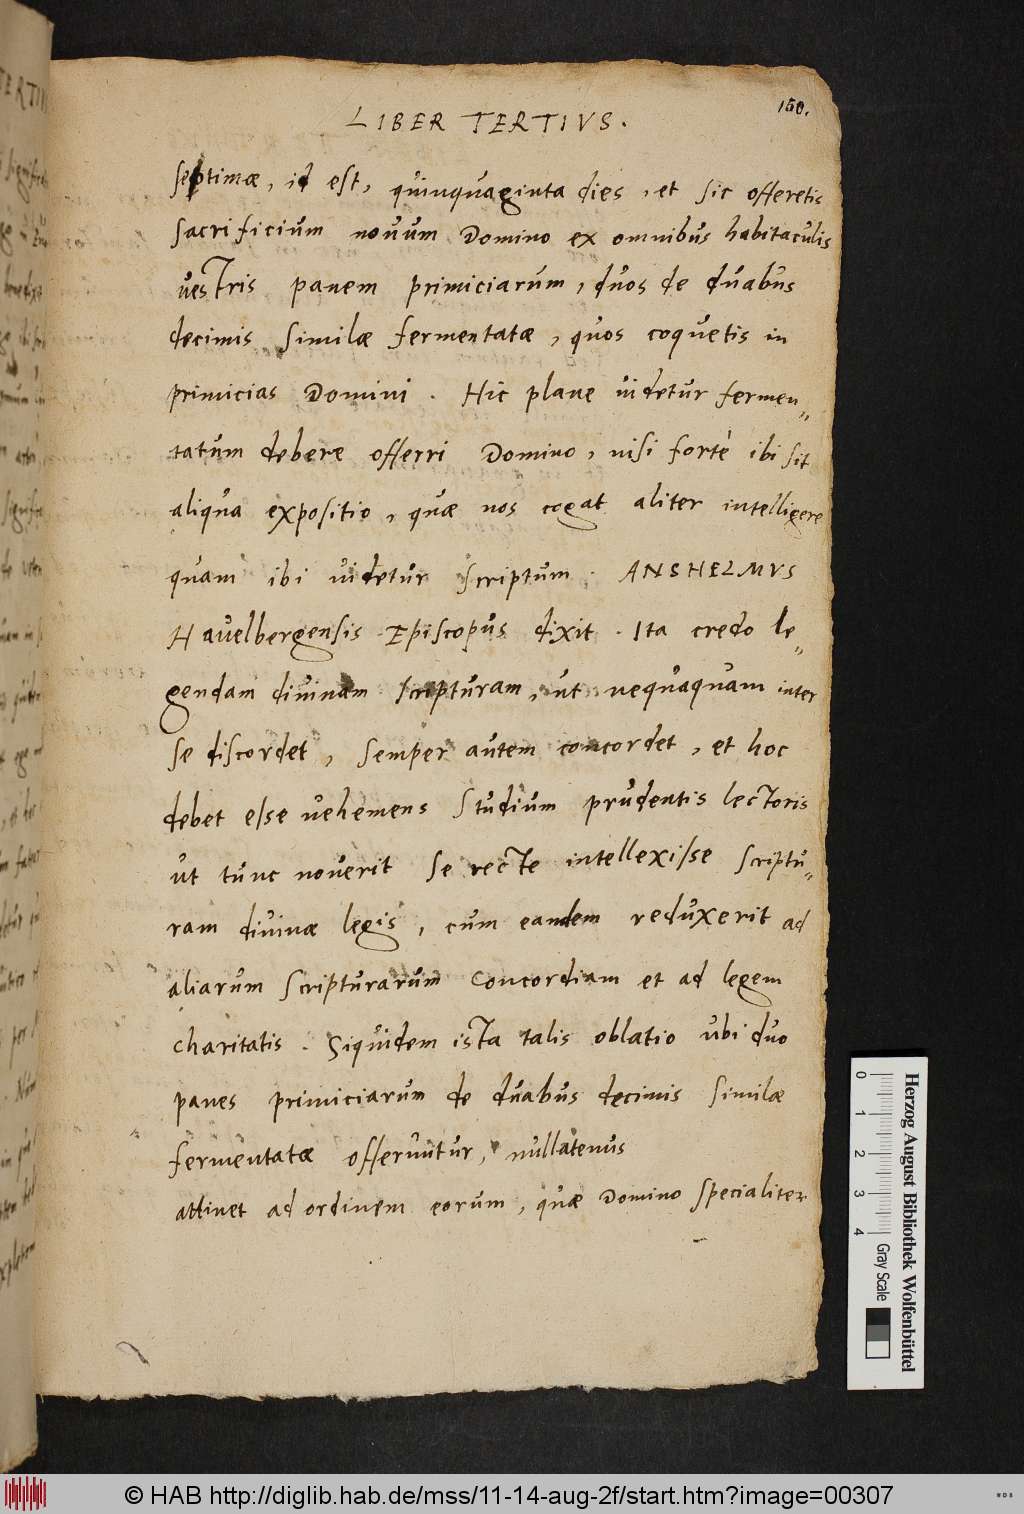 150.
LIBER TERTIVS.
septimæ, id est, quinquaginta dies, et sic offeretis
sacrificium novum Domino ex omnibus habitaculis
vestris panem primiciarum, duos de duabus
decimis similæ fermentatæ, quos coquetis in
primicias Domini. Hic plane videtur fermen„
tatum debere offerri Domino, nisi fortè ibi sit
aliqua expositio, quæ nos cogat aliter intelligere
quam ibi videtur scriptum. ANSHELMVS
Havelbergensis Episcopus dixit. Ita credo le„
gendam divinam scripturam, ut nequaquam inter
se discordet, semper autem concordet, et hoc
debet esse vehemens studium prudentis lectoris
ut tunc noverit se recte intellexisse scriptu„
ram divinæ legis, cum eandem reduxerit ad
aliarum scripturarum concordiam et ad legem
charitatis. Siquidem ista talis oblatio ubi duo
panes primiciarum de duabus decimis similæ
fermentatæ offeruntur, nullatenus
attinet ad ordinem eorum, quæ Domino specialiter
Herzog August Bibliothek Wolfenbüttel
0 1 2 3 4 Gray Scale
© HAB http://diglib.hab.de/mss/11-14-aug-2f/start.htm?image=00307